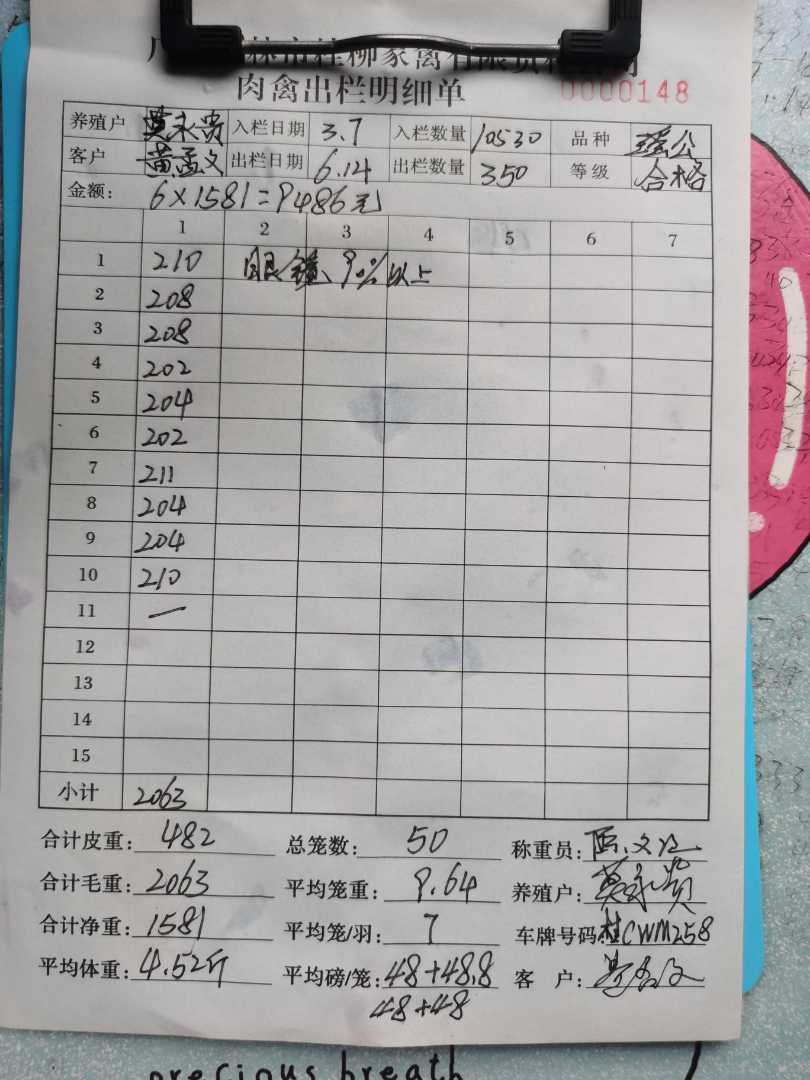 林市桂柳家禽有限责任公司
肉禽出栏明细单 0000148
养殖户 莫永贵 入栏日期 3.7 入栏数量 10530 品种 瑶公
客户 黄孟文 出栏日期 6.14 出栏数量 350 等级 合格
金额: 6×1581=9486元
1 2 3 4 5 6 7
1 210 眼镜、90%以上
2 208
3 208
4 202
5 204
6 202
7 211
8 204
9 204
10 210
11 —
12
13
14
15
小计 2063
合计皮重: 482 总笼数: 50 称重员:
合计毛重: 2063 平均笼重: 9.64 养殖户: 莫永贵
合计净重: 1581 平均笼/羽: 7 车牌号码: 桂CWM258
平均体重: 4.52斤 平均磅/笼: 48+48.8 客 户:
48+48
precious breath